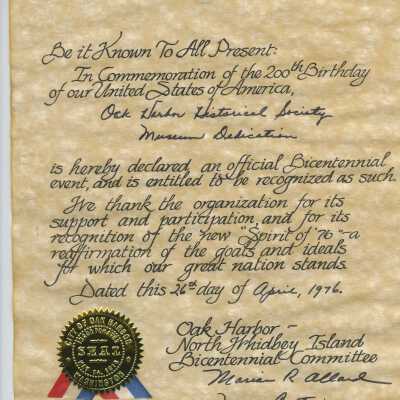 Be it Known To All Present:
In Commemoration of the 200th Birthday
of our United States of America,
Oak Harbor Historical Society
Museum Dedication
is hereby declared an official Bicentennial
event, and is entitled to be recognized as such.
We thank the organization for its
support and participation, and for its
recognition of the new "Spirit of '76"-a
reaffirmation of the goals and ideals
for which our great nation stands.
Dated this 26th day of April, 1976.
Oak Harbor -
North Whidbey Island
Bicentennial Committee
Marian R. Allard
CITY OF OAK HARBOR
SEAL
WASHINGTON